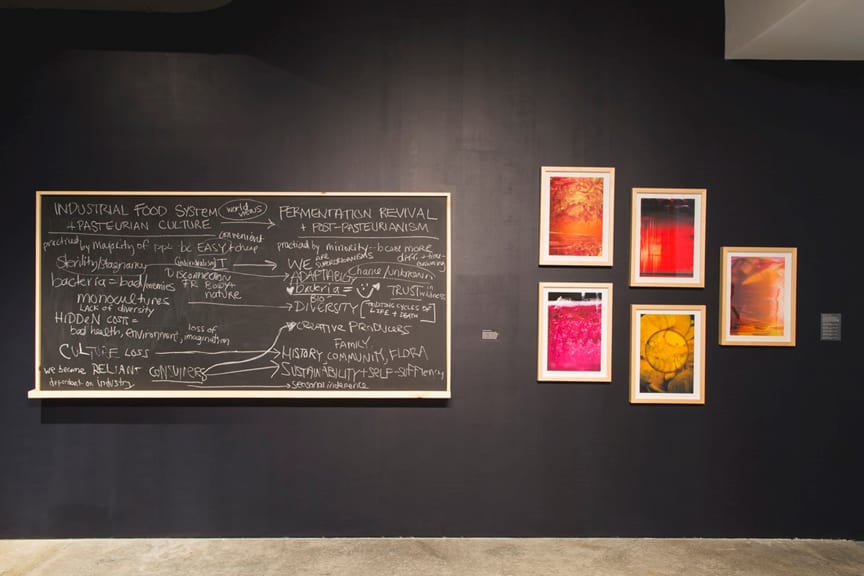 INDUSTRIAL FOOD SYSTEM
+ PASTEURIAN CULTURE
world views
FERMENTATION REVIVAL
+ POST-PASTEURIANISM
convenient
practiced by majority of ppl - bc EASY + cheap
practiced by minority - bc
more
diff. + time-
Sterility/stagnancy
WE ARE SUPERORGANISMS
ADAPTABIG
Change/unknown
DISCONNECTION
FR BODY +
nature
bacteria = bad/enemies
bacteria =
TRUST in
monocultures
LACK of diversity
BIO
DIVERSITY
CYCLES OF
LIFE + DEATH
HIDDEN COSTS =
bad health, environment,
loss of
imagination
CREATIVE PRODUCERS
CULTURE LOSS
FAMILY,
HISTORY, COMMUNITY, FLORA
we become RELIANT
dependant on industry
CONSUMERS
SUSTAINABILITY + SELF-SUFFIENCY